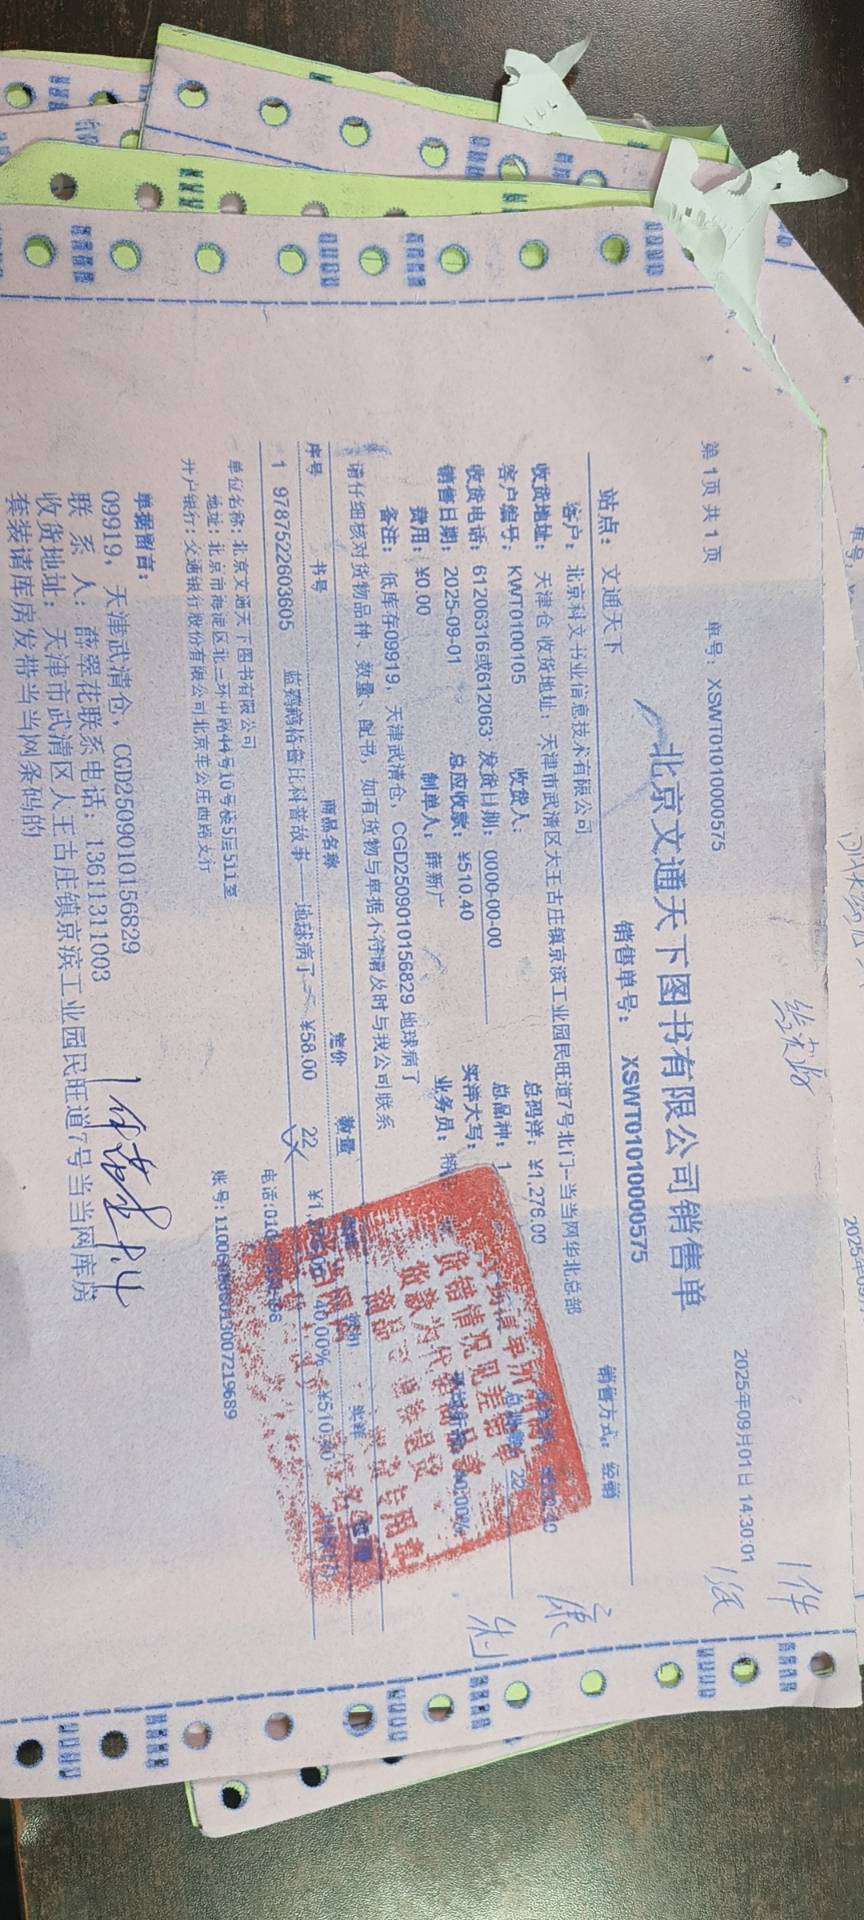 第 1页 共 1 页 单号: XSWT01010000575 2025年09月01日 14:30:01
1件
北京文通天下图书有限公司销售单
销售单号: XSWT01010000575
站点: 文通天下 销售方式: 经销
客户: 北京科文书业信息技术有限公司
收货地址: 天津仓 收货地址: 天津市武清区大王古庄镇京滨工业园民旺道7号北门-当当网华北总部
客户编号: KWT0100105 收货人: 总码洋: ¥1,276.00
收货电话: 61206316或612063 发货日期: 0000-00-00 总品种: 1 22
销售日期: 2025-09-01 总应收款: ¥510.40 实洋大写:
费用: ¥0.00 制单人: 薛新广 业务员:
备注: 低库存09919, 天津武清仓, CGD2509010156829 地球病了
请仔细核对货物品种、数量、配书, 如有货物与单据不符请及时与我公司联系
序号 书号 商品名称 定价 数量 实洋
1 9787522603605 蓝鹦鹉格鲁比科普故事——地球病了 ¥58.00 22 40.00% ¥510.40
单位名称: 北京文通天下图书有限公司
地址: 北京市海淀区北三环中路44号10号楼5层511室
开户银行: 交通银行股份有限公司北京车公庄西路支行
单据留言:
09919, 天津武清仓, CGD2509010156829
联 系 人: 薛翠花联系电话: 13611311003
收货地址: 天津市武清区大王古庄镇京滨工业园民旺道7号当当网库房
套装请库房发带当当网条码的